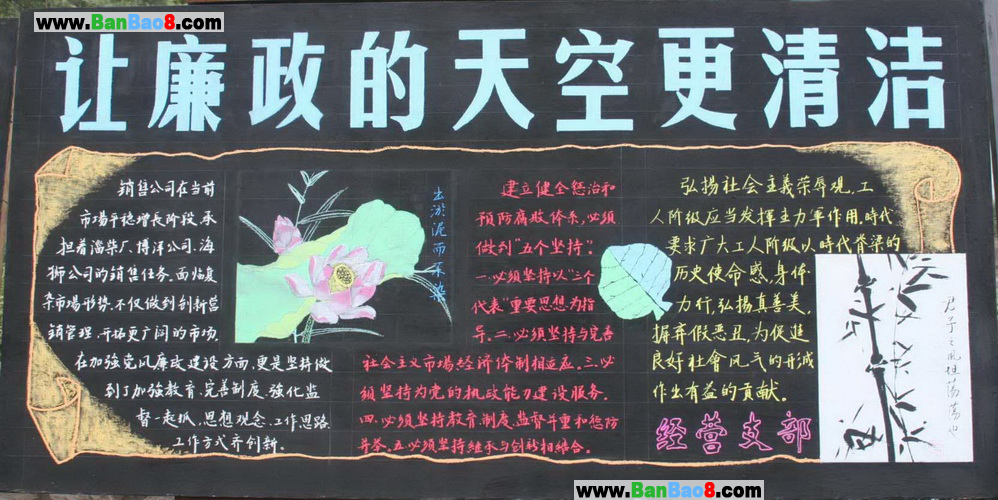 www.BanBao8.com
www.BanBao8.com
让廉政的天空更清洁
销售公司在当前
市场平稳增长阶段,承
担着淄柴厂、博洋公司、海
狮公司的销售任务,面临复
杂市场形势,不仅做到创新营
销管理,开拓更广阔的市场,
在加强党风廉政建设方面,更是坚持做
到了加强教育、完善制度、强化监
督一起抓,思想观念、工作思路
工作方式齐创新.
出淤泥而不染
建立健全惩治和
预防腐败体系,必须
做到"五个坚持":
一.必须坚持以"三个
代表"重要思想为指
导.二.必须坚持与完善
社会主义市场经济体制相适应.三.必
须坚持为党的执政能力建设服务.
四.必须坚持教育、制度、监督并重和惩防
并举.五.必须坚持继承与创新相结合.
弘揚社会主義荣辱观,工
人阶级应当发挥主力軍作用,時代
要求广大工人阶级以時代脊梁的
历史使命感,身体
力行,弘揚真善美,
摒弃假恶丑,为促進
良好社會风气的形成
作出有益的贡献.
经营支部
君子之风坦荡荡也
www.BanBao8.com